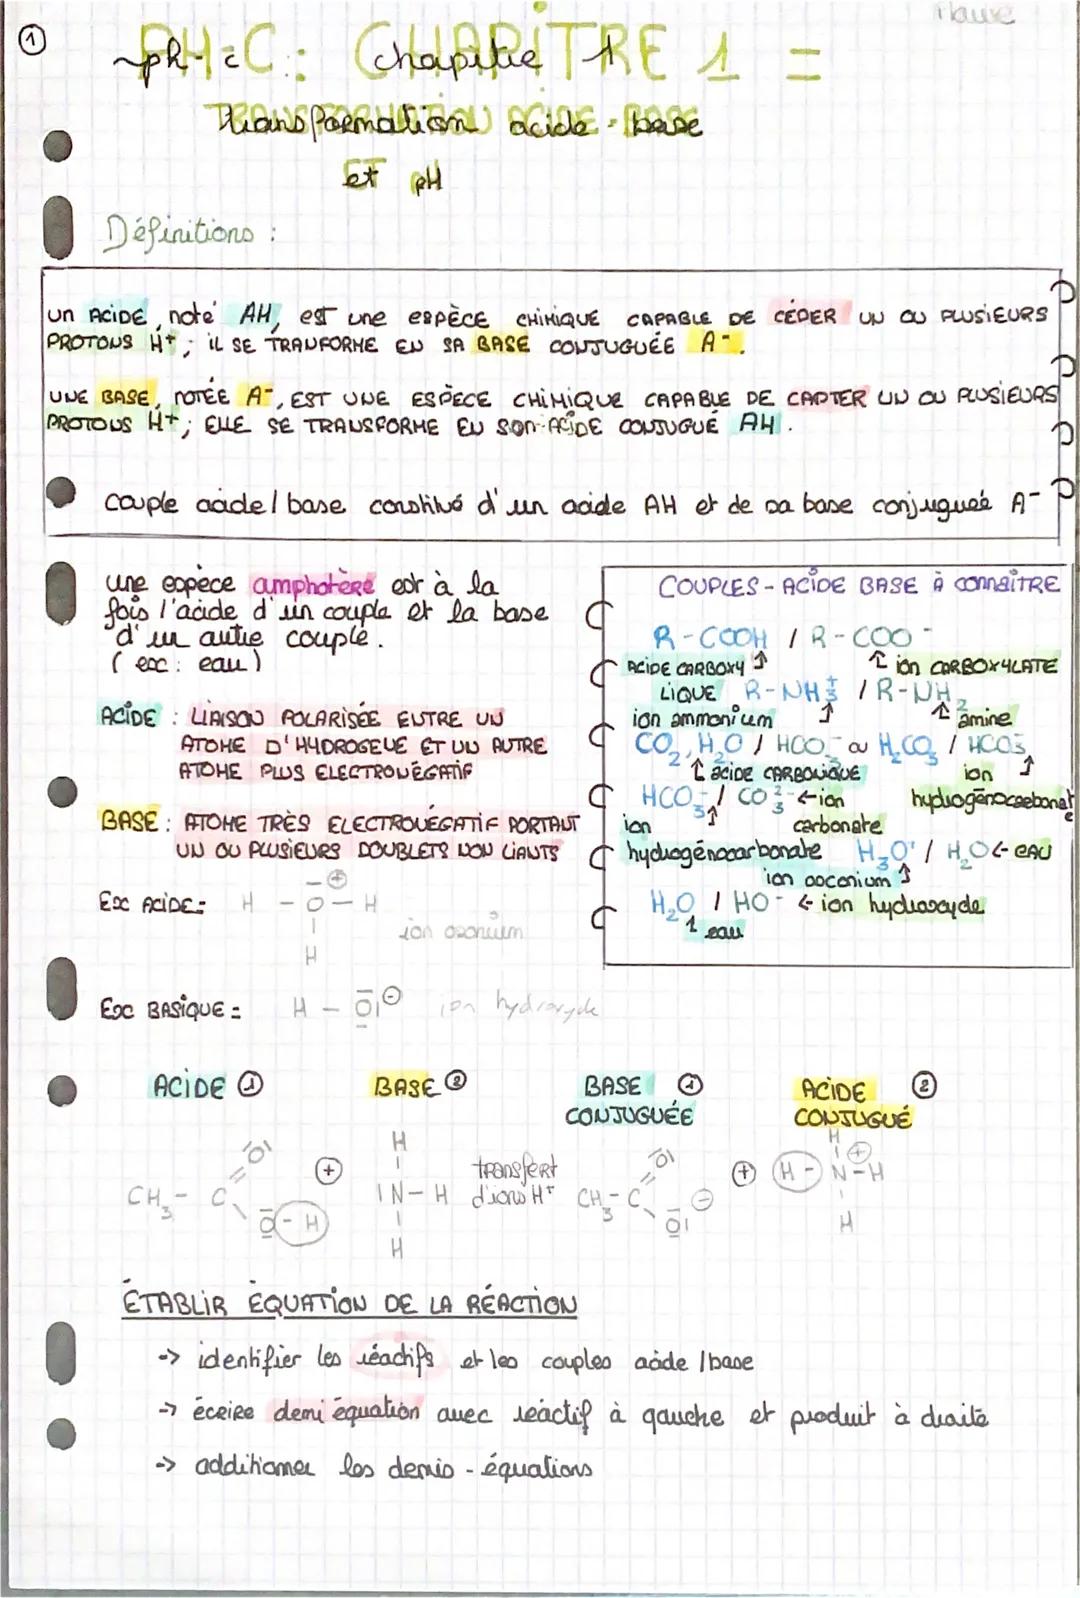 ①
PH-C : CHAPITRE 1 =
ph-c chapitre 1
TRANSFORMATION ACIDE-BASE
Transformation acide-base
ET pH
Définitions :
Un ACIDE, noté AH, est une espèce CHIMIQUE CAPABLE DE CÉDER UN OU PLUSIEURS
PROTONS H⁺; IL SE TRANFORME EN SA BASE CONJUGUÉE A⁻.
UNE BASE, NOTÉE A⁻, EST UNE ESPÈCE CHIMIQUE CAPABLE DE CAPTER UN OU PLUSIEURS
PROTONS H⁺; ELLE SE TRANSFORME EN SON ACIDE CONJUGUÉ AH.
couple acide / base constitué d'un acide AH et de sa base conjuguée A⁻
une espèce amphotère est à la
fois l'acide d'un couple et la base
d'un autre couple.
(ex : eau)
ACIDE : LIAISON POLARISÉE ENTRE UN
ATOME D'HYDROGENE ET UN AUTRE
ATOME PLUS ELECTRONÉGATIF
BASE : ATOME TRÈS ELECTRONÉGATIF PORTANT
UN OU PLUSIEURS DOUBLETS NON LIANTS
COUPLES - ACIDE BASE À CONNAÎTRE
R-COOH / R-COO⁻
ACIDE CARBOXY ↑ ↑ ion CARBOXYLATE
LIQUE R-NH₃⁺ / R-NH₂
ion ammonium ↑ ↑ amine
CO₂,H₂O / HCO₃⁻ ou H₂CO₃ / HCO₃⁻
↑ acide CARBONIQUE ion ↑
HCO₃⁻ / CO₃²⁻ ← ion hydrogénocarbonate
ion ↑ carbonate
hydrogénocarbonate H₃O⁺ / H₂O ← EAU
ion oxonium ↑
H₂O / HO⁻ ← ion hydroxyde
↑ eau
Ex ACIDE : H - O - H ⊕
H
ion oxonium
Ex BASIQUE = H - O ⊖ ion hydroxyde
ACIDE ① BASE ② BASE ① ACIDE ②
CONJUGUÉE CONJUGUÉ
CH₃ - C O O - H ⊕ H N - H H transfert d'ions H⁺ CH₃ - C O O ⊖ ⊕ H - N - H H H ⊕
ÉTABLIR ÉQUATION DE LA RÉACTION
-> identifier les réactifs et les couples acide / base
-> écrire demi équation avec réactif à gauche et produit à droite
-> additionner les demis - équations